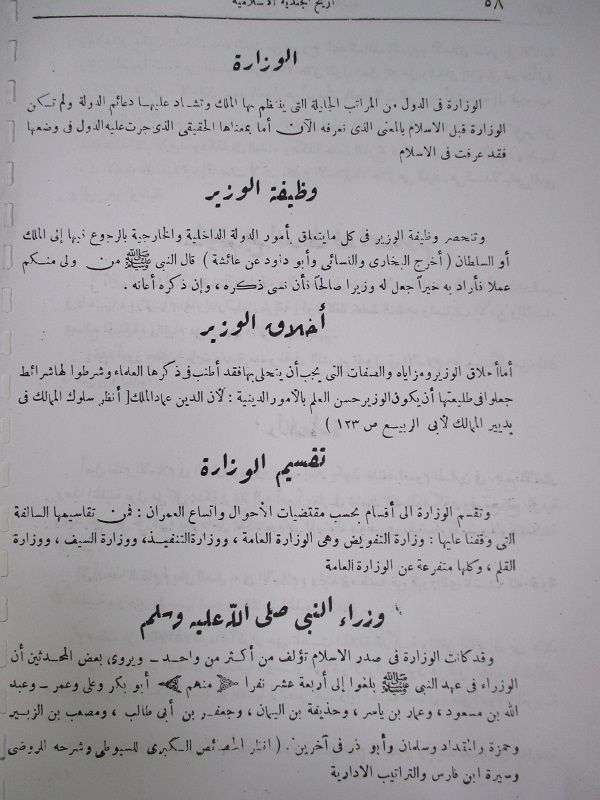 ٥٨ تاريخ الجندية الاسلامية
الوزارة
الوزارة فى الدول من المراتب الجليلة التى ينتظم بها الملك وتشاد عليها دعائم الدولة ولم تكن
الوزارة قبل الاسلام بالمعنى الذى نعرفه الآن أما بمعناها الحقيقى الذى جرت عليه الدول فى وضعها
فقد عرفت فى الاسلام
وظيفة الوزير
وتنحصر وظيفة الوزير فى كل ما يتعلق بأمور الدولة الداخلية والخارجية بالرجوع فيها إلى الملك
أو السلطان ( أخرج البخارى والنسائى وأبو داود عن عائشة ) قال النبي ﷺ من ولى منكم
عملا فأراد به خيراً جعل له وزيرا صالحاً فأن نسى ذكره ، وإن ذكره أعانه .
أخلاق الوزير
أما أخلاق الوزير ومزاياه والصفات التى يجب أن يتحلى بها فقد أطنب فى ذكرها العلماء وشرطوا لها شرائط
جعلوا فى طليعتها أن يكون الوزير حسن العلم بالأمور الدينية : لأن الدين عماد الملك [ أنظر سلوك الممالك فى
يديير الممالك لأبى الربيع ص ١٢٣ )
تقسيم الوزارة
وتقسم الوزارة الى أقسام بحسب مقتضيات الأحوال واتساع العمران : فمن تقاسيمها السالفة
التى وقفنا عليها : وزارة التفويض وهى الوزارة العامة ، ووزارة التنفيذ، ووزارة السيف ، ووزارة
القلم ، وكلها متفرعة عن الوزارة العامة
وزراء النبى صلى الله عليه وسلم
وقد كانت الوزارة فى صدر الاسلام تؤلف من أكثر من واحد ــ ويروى بعض المحدثين أن
الوزراء فى عهد النبى ﷺ بلغوا إلى أربعة عشر نفرا منهم أبو بكر وعلى وعمر ــ وعبد
الله بن مسعود ، وعمار بن ياسر ، وحذيفة بن اليمان ، وجعفر بن أبى طالب ، ومصعب بن الزبير
وحمزة والمقداد وسلمان وأبو ذر فى آخرين . ( انظر الخصائص الكبرى للسيوطى وشرحه للروضى
وسيرة ابن فارس والتراتيب الادارية